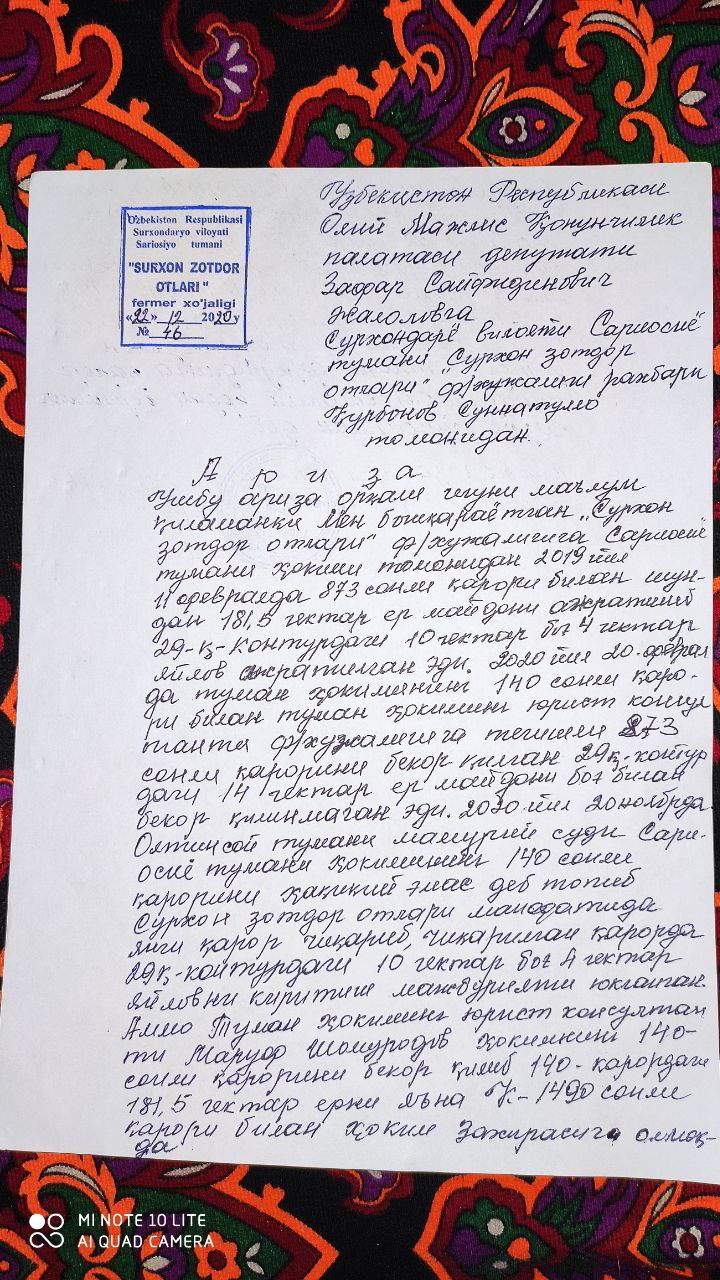 O'zbekiston Respublikasi
Surxondaryo viloyati
Sariosiyo tumani
"SURXON ZOTDOR
OTLARI"
fermer xo'jaligi
«22» 12 2020 y
№ 46
Ўзбекистон Республикаси
Олий Мажлис Қонунчилик
палатаси депутати
Зафар Сайфидинович
Жалоловга
Сурхондарё вилояти Сариосиё
тумани "Сурхон зотдор
отлари" ф/хужалиги рахбари
Қурбонов Суннатулло
томонидан.
А р и з а
Ушбу ариза орқали шуни маълум
қиламанки Мен бошқараётган „Сурхон
зотдор отлари" ф/хужалигига Сариосиё
тумани ҳокими томонидан 2019 йил
11 февралда 873 сонли қарори билан шун-
дан 181,5 гектар ер майдони ажратилиб
29-қ-контурдаги 10 гектар боғ 4 гектар
яйлов ажратилган эди. 2020 йил 20-феврал
да туман ҳокимининг 140 сонли қаро-
ри билан туман ҳокимининг юрист консул
танти ф/хужалигига тегишли 873
сонли қарорини бекор қилган 29қ-контур
даги 14 гектар ер майдони боғ билан
бекор қилинмаган эди. 2020 йил 20 ноябрда
Олтинсой тумани маъмурий суди Сари-
осиё тумани ҳокимининг 140 сонли
қарорини ҳақиқий эмас деб топиб
Сурхон зотдор отлари манфатида
янги қарор чиқариб, чиқарилган қарорда
29қ-контурдаги 10 гектар боғ 4 гектар
яйловни киритиш мажбурияти юклатган.
Аммо Туман ҳокимининг юрист консултан
ти Маруф Шомуродов ҳокимнинг 140-
сонли қарорини бекор қилиб 140-қарордаги
181,5 гектар ерни яъна Қ-1490 сонли
қарори билан ҳоким захирасига олмоқ-
да
MI NOTE 10 LITE
AI QUAD CAMERA